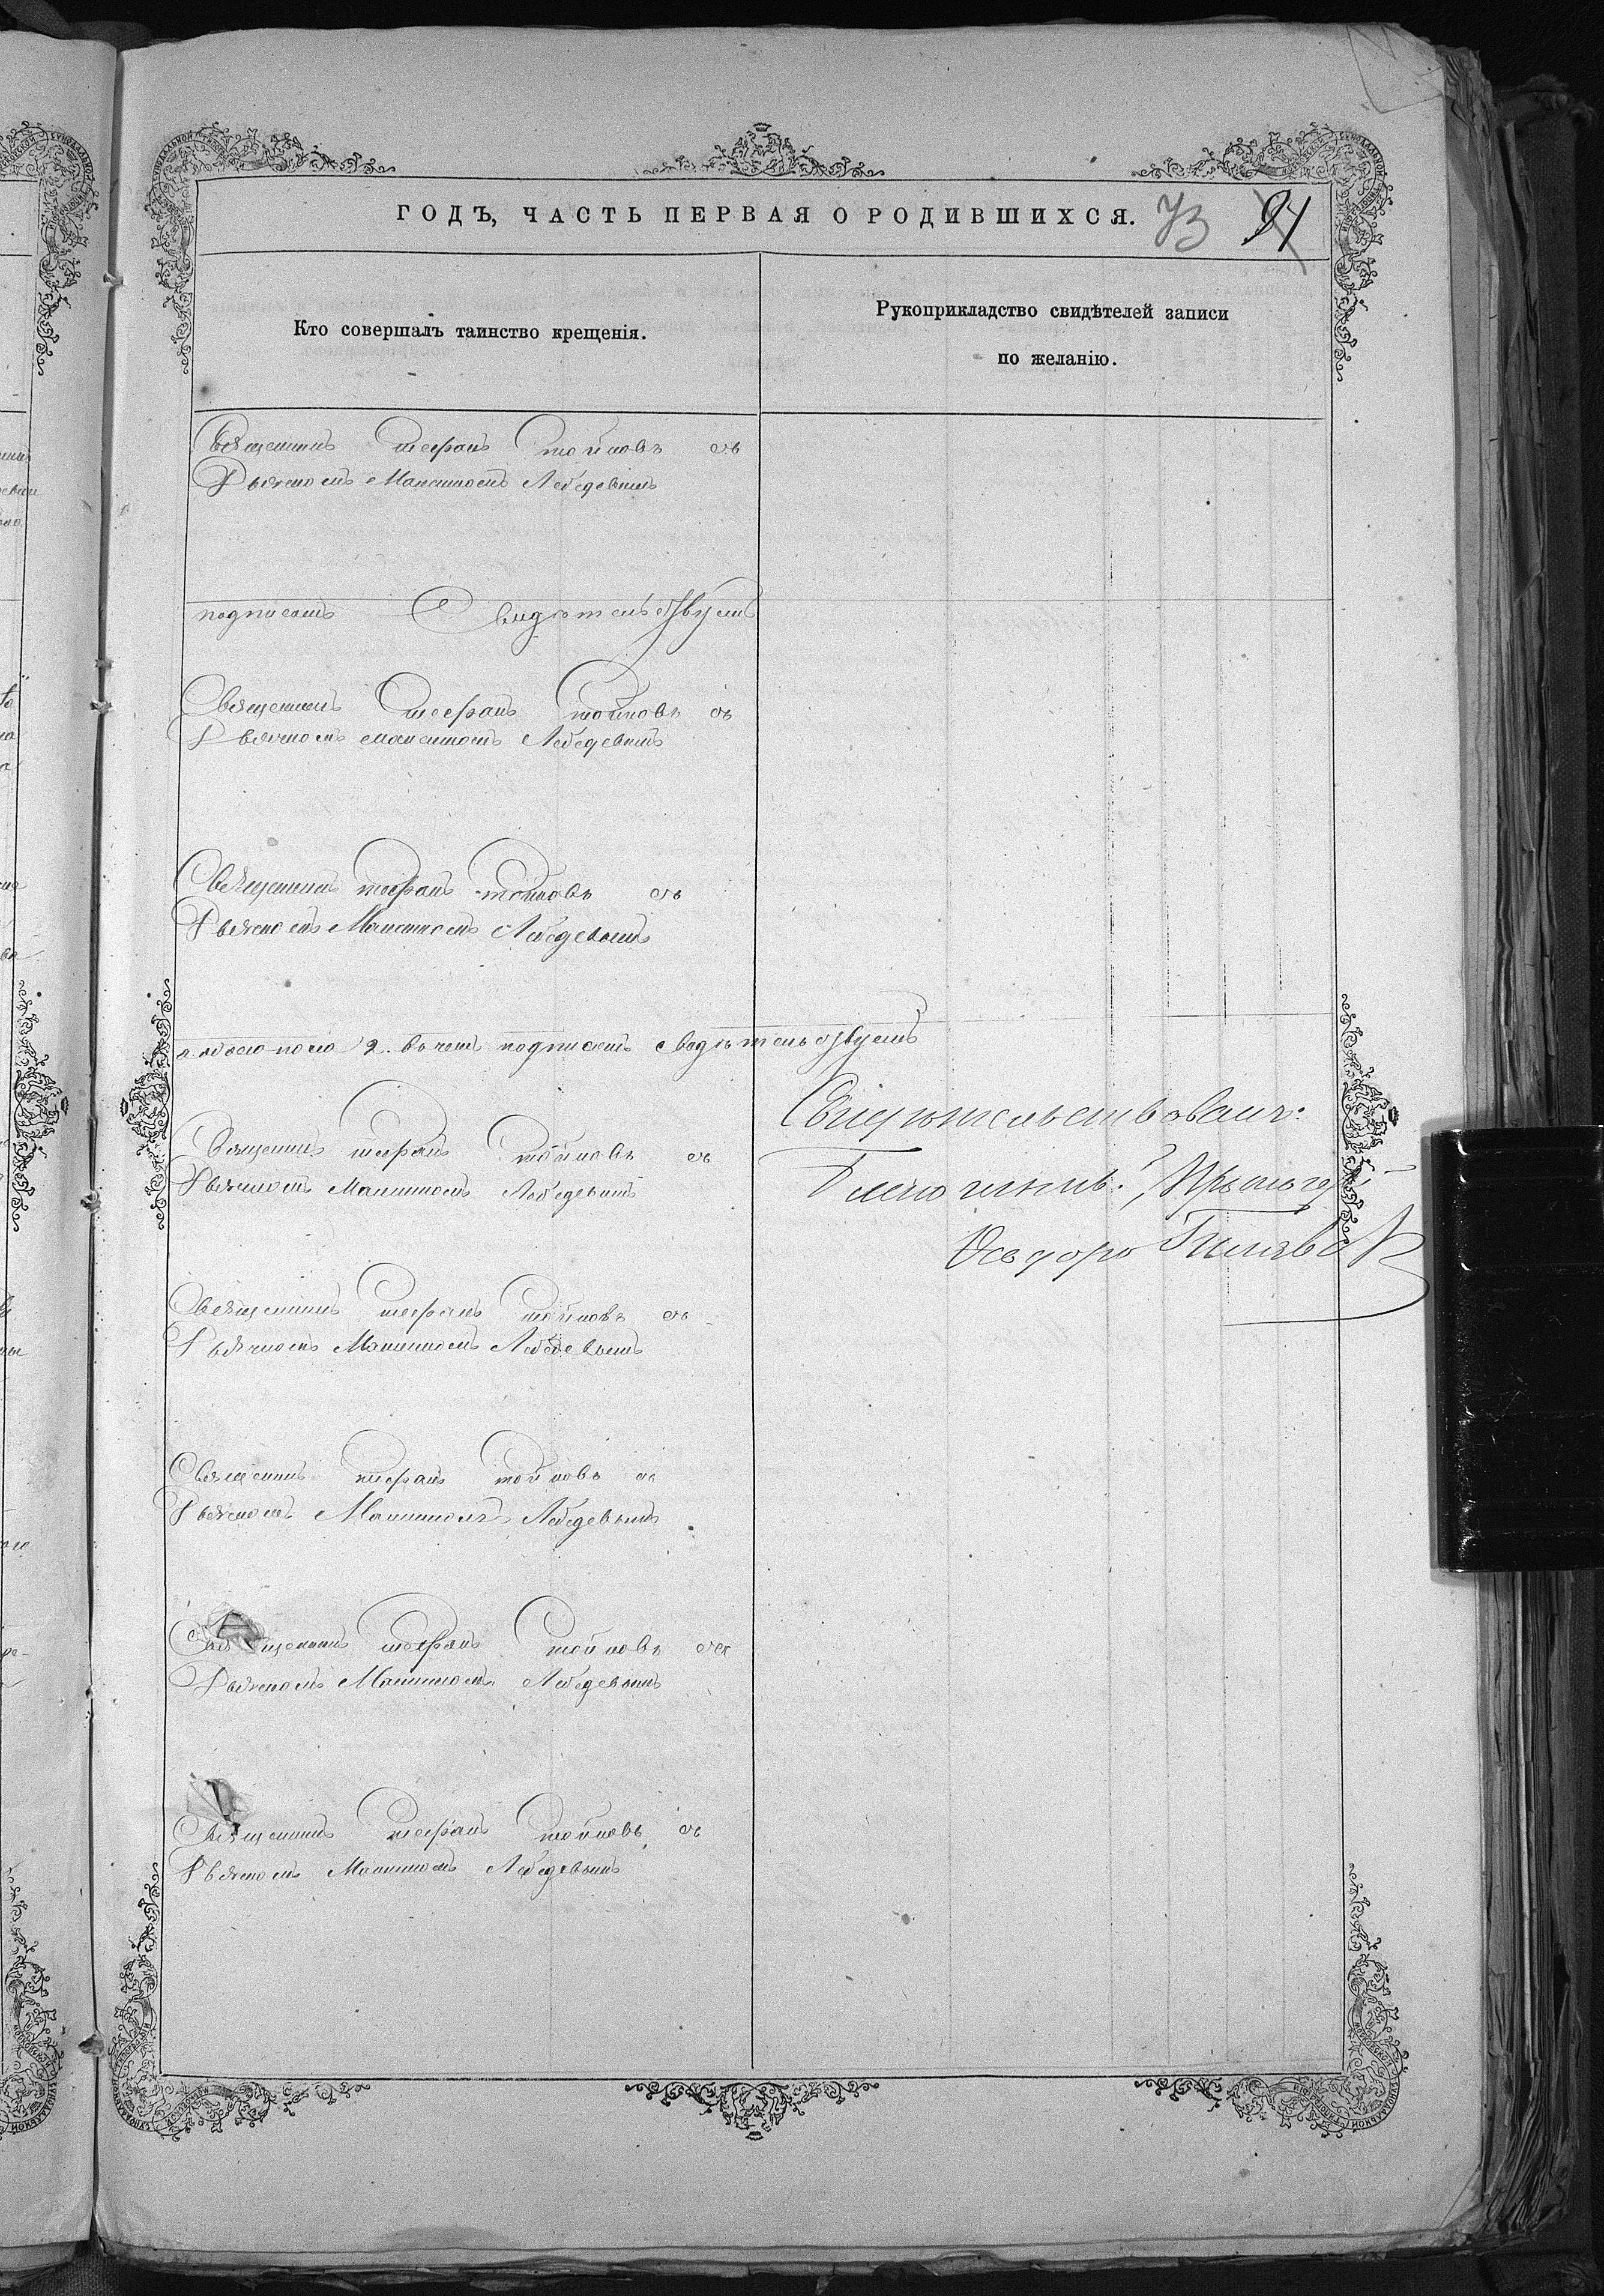 ГОДЪ, ЧАСТЬ ПЕРВАЯ О РОДИВШИХСЯ. 73 91
Кто совершалъ таинство крещенія.
Рукоприкладство свидѣтелей записи
по желанію.
Священникъ Стефанъ Тойновъ съ
Дьячкомъ Максимомъ Лебедевымъ
подписомъ Свидѣтельствуемъ
Священникъ Стефанъ Тойновъ съ
Дьячкомъ Максимомъ Лебедевымъ
Священникъ Стефанъ Тойновъ съ
Дьячкомъ Максимомъ Лебедевымъ
2. въ чемъ подписомъ свидѣтельствуемъ
Священникъ Стефанъ Тойновъ съ
Дьячкомъ Максимомъ Лебедевымъ
Свидѣтельствовалъ:
Благочинн. Прото
Ѳеодоръ
Священникъ Стефанъ Тойновъ съ
Дьячкомъ Максимомъ Лебедевымъ
Священникъ Стефанъ Тойновъ съ
Дьячкомъ Максимомъ Лебедевымъ
Священникъ Стефанъ Тойновъ съ
Дьячкомъ Максимомъ Лебедевымъ
Священникъ Стефанъ Тойновъ съ
Дьячкомъ Максимомъ Лебедевымъ